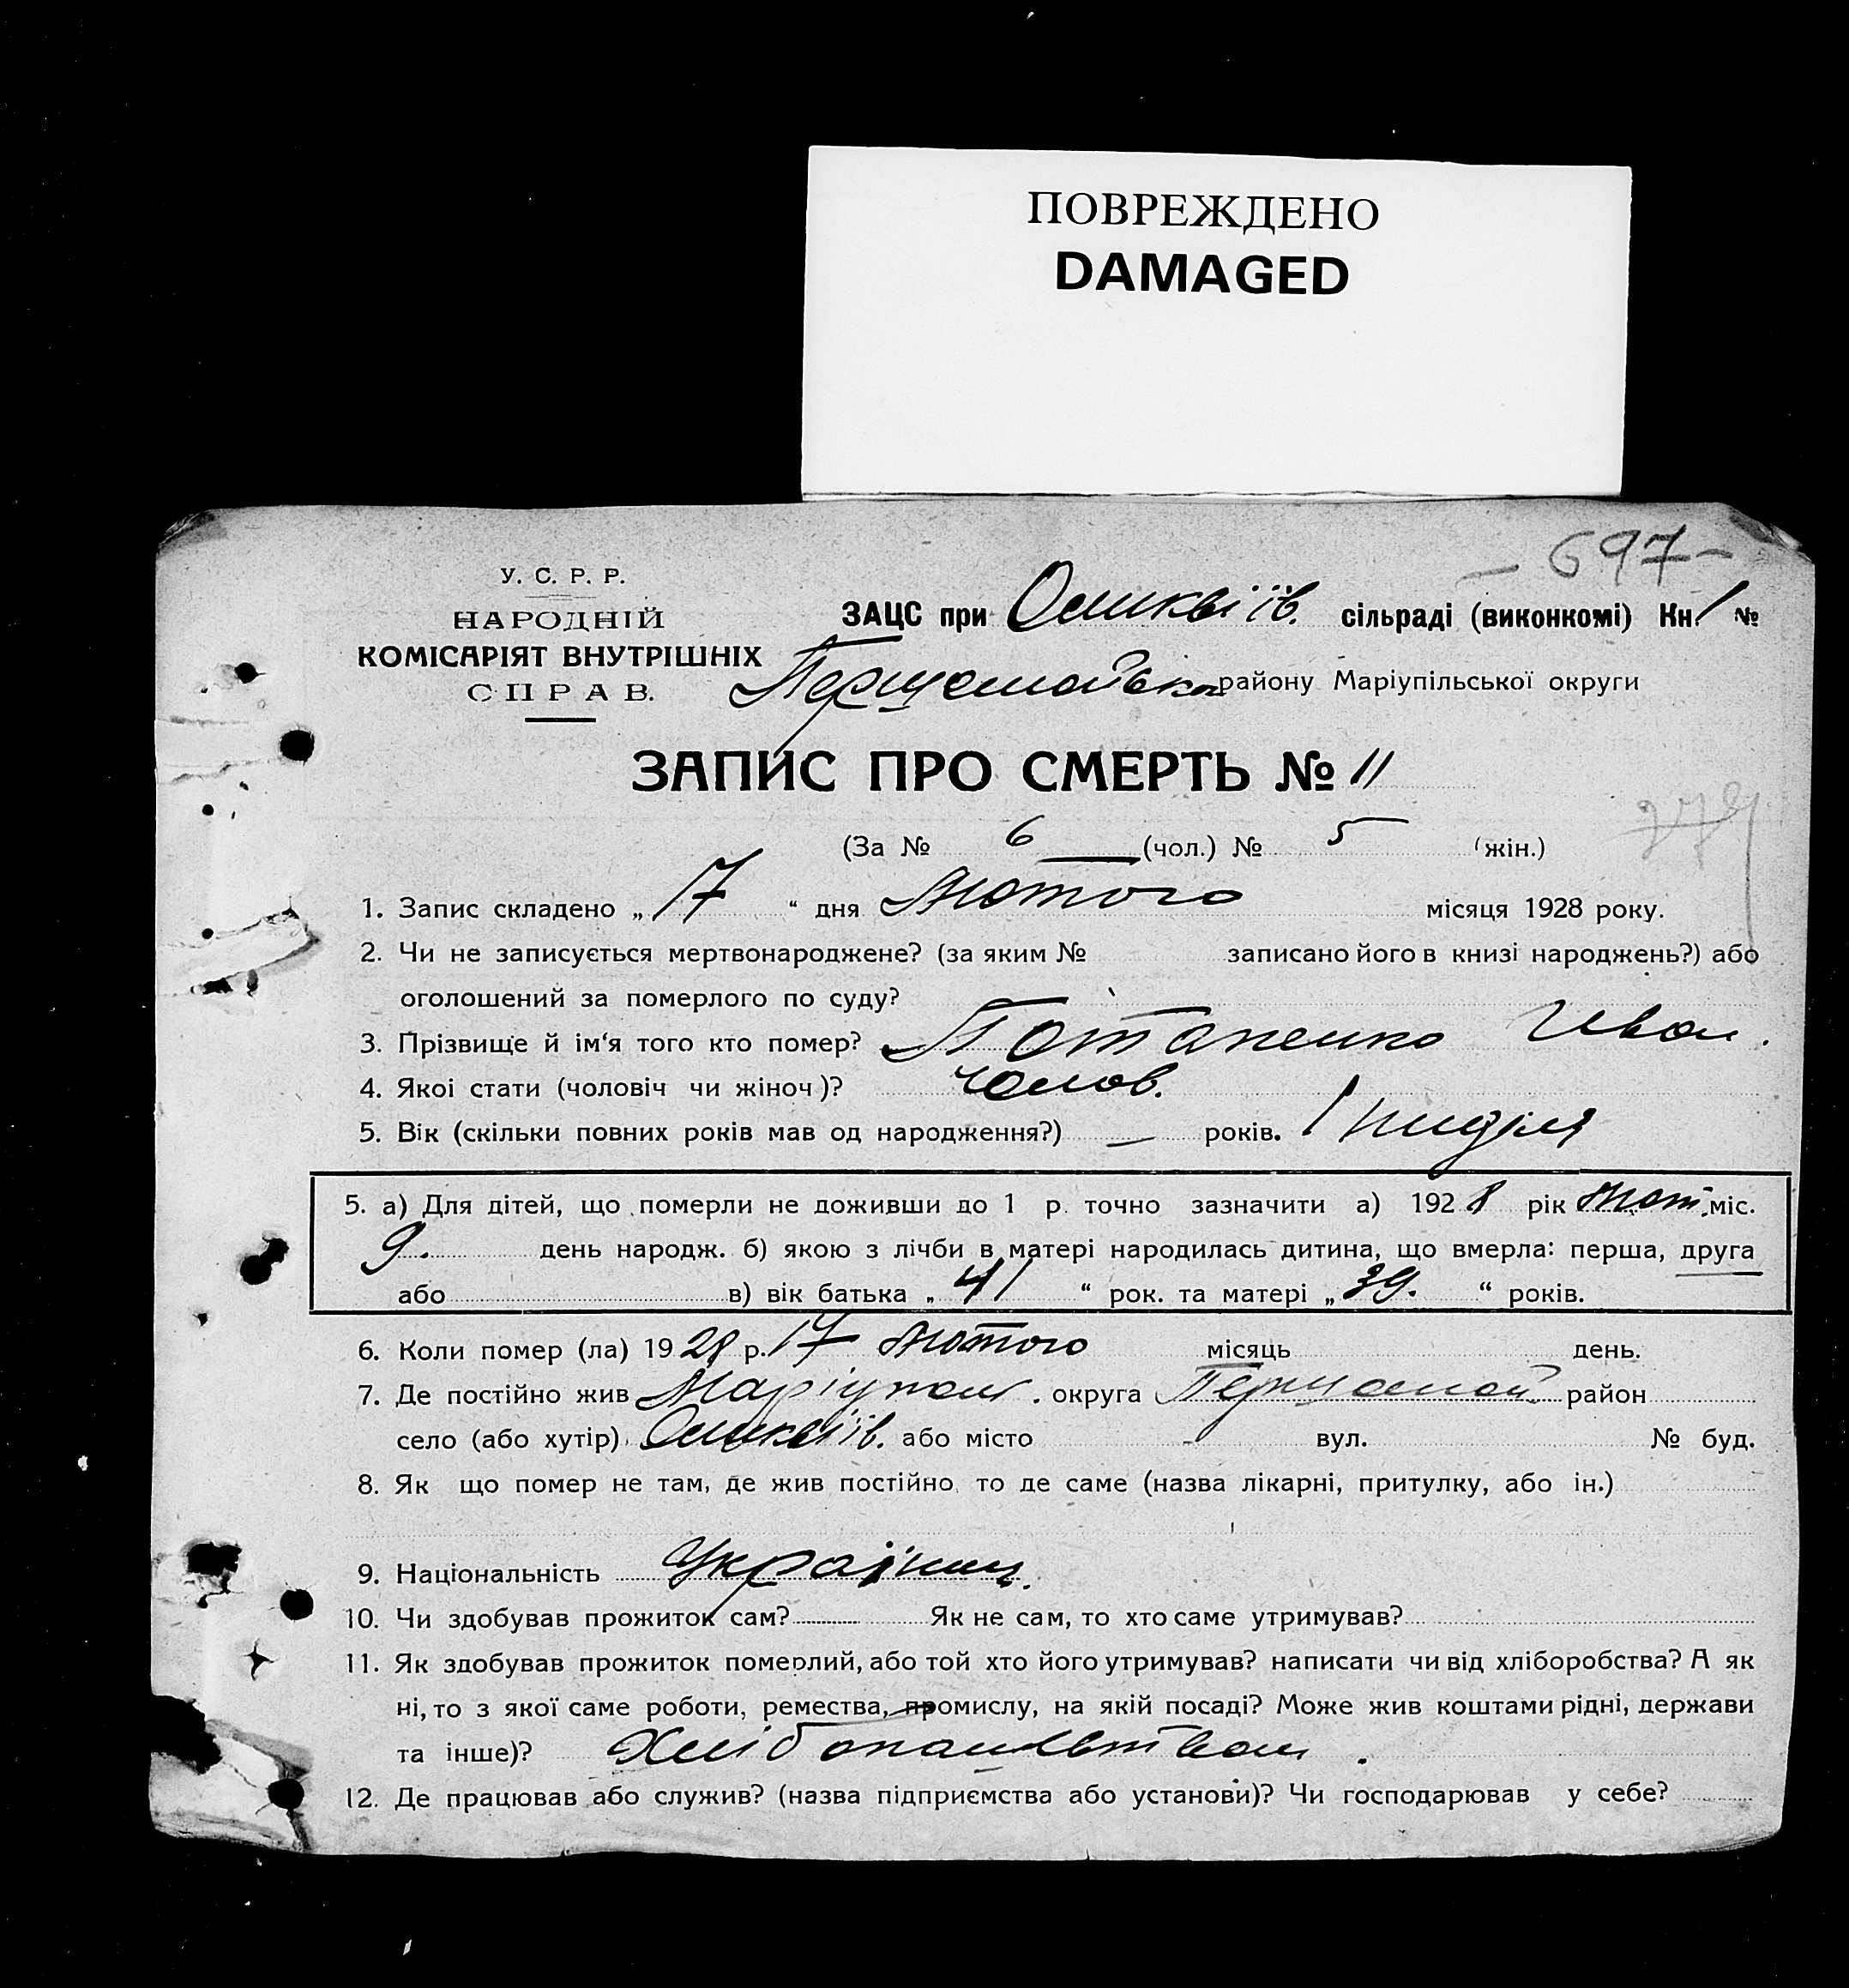 ПОВРЕЖДЕНО
DAMAGED
– 697 –
У. С. Р. Р.
НАРОДНІЙ
КОМІСАРІЯТ ВНУТРІШНІХ
СПРАВ.
ЗАЦС при сільраді (виконкомі) Кн. 1 №
району Маріупільської округи
ЗАПИС ПРО СМЕРТЬ № 11
(За № 6 (чол.) № 5 (жін.)
1. Запис складено „ 17 “ дня Лютого місяця 1928 року.
2. Чи не записується мертвонароджене? (за яким № записано його в книзі народжень?) або
оголошений за померлого по суду?
3. Прізвище й ім‘я того кто помер? Потапенко Иван.
4. Якоі стати (чоловіч чи жіноч)? Чолов.
5. Вік (скільки повних років мав од народження?) — років. 1 ниділя
5. а) Для дітей, що померли не доживши до 1 р. точно зазначити а) 1928 рік Лют. міс.
9. день народж. б) якою з лічби в матері народилась дитина, що вмерла: перша, друга
або в) вік батька „ 41 “ рок. та матері „ 39. “ років.
6. Коли помер (ла) 1928 р. 17 Лютого місяць день.
7. Де постійно жив Маріупол. округа Першомай район
село (або хутір) або місто - вул. № буд.
8. Як що помер не там, де жив постійно, то де саме (назва лікарні, притулку, або ін.)
9. Національність Українец.
10. Чи здобував прожиток сам? Як не сам, то хто саме утримував?
11. Як здобував прожиток померлий, або той хто його утримував? написати чи від хліборобства? А як
ні, то з якої саме роботи, ремества, промислу, на якій посаді? Може жив коштами рідні, держави
та інше)?
12. Де працював або служив? (назва підприємства або установи)? Чи господарював у себе?